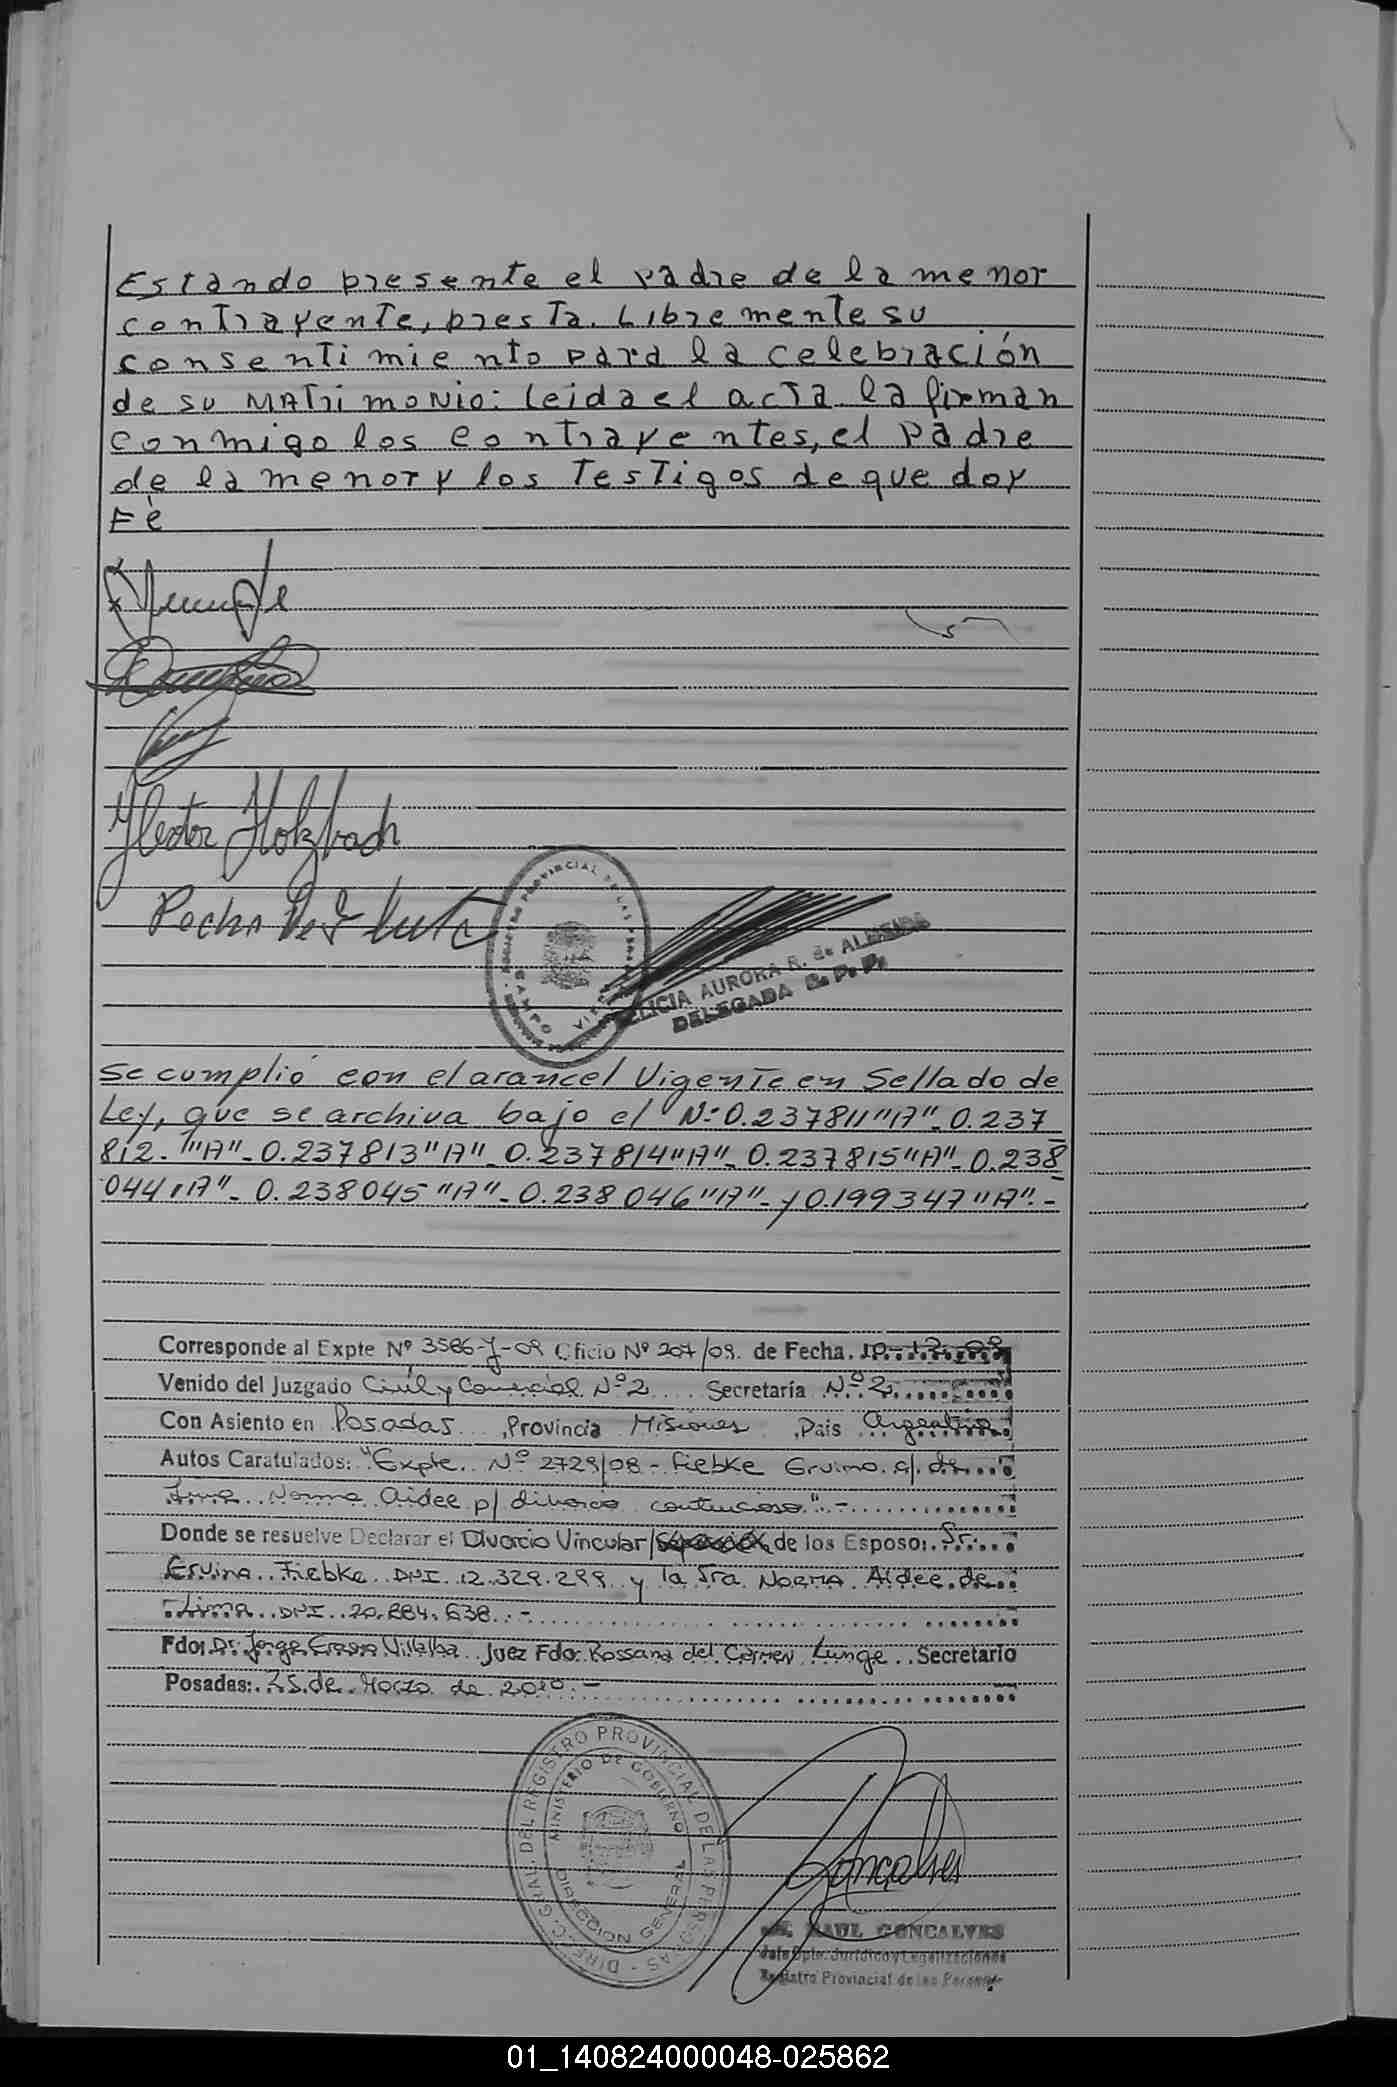 Estando presente el padre de la menor
contrayente, presta libremente su
consentimiento para la celebración
de su MATriMONio: leida el acta la firman
conmigo los contrayentes, el padre
de la menor y los Testigos de que doy
Fè
Hector Holzbach
REGISTRO PROVINCIAL DE LAS
CAMPO VIERA
FELICIA AURORA R. de ALMEIDA
DELEGADA R. P. P.
Se cumplió con el arancel Vigente en Sellado de
Ley, que se archiva bajo el Nº 0.237811"A"_ 0.237
812-"A"_ 0.237813"A"_ 0.237814"A"_ 0.237815"A"_ 0.238
044"A"_ 0.238045"A"_ 0.238046"A"_ y 0.199347"A".-
Corresponde al Expte Nº 3586-J-09 Oficio Nº 207/09. de Fecha. 10-12-09
Venido del Juzgado Civil y Comercial Nº 2 Secretaría Nº 2
Con Asiento en Posadas , Provincia Misiones , Pais Argentina
Autos Caratulados: "Expte. Nº 2729/08 - Fiebke Ervino c/ de
Lima Norma Aidee p/ divorcio contencioso" -
Donde se resuelve Declarar el Divorcio Vincular/ de los Esposo: Sr.
Ervino Fiebke DNI 12.329.299 y la Sra Norma Aidee de
Lima DNI 20.884.638 -
Fdo: Dr. Jorge Villalba Juez Fdo: Rossana del Carmen Lunge Secretario
Posadas: 25 de Marzo de 2010 -
DIREC. GRAL. DEL REGISTRO PROVINCIAL DE LAS PERSONAS -
MINISTERIO DE GOBIERNO
DIRECCION GENERAL
Goncalves
RAUL GONCALVES
Jefe Dpto. Jurídico y Legalizaciones
Registro Provincial de las Personas
01_140824000048-025862